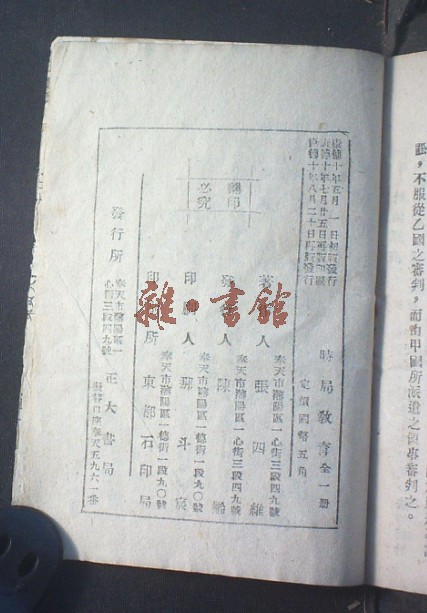 張，不服從乙國之審判，而由甲國所派遣之領事審判之。
康德十年五月一日初版發行
康德十年七月廿五日再版印刷
康德十年八月二十日再版發行
時局教育全一冊
定價國幣五角
著作人
奉天市瀋陽區一心街三段四九號
張四維
發行人
奉天市瀋陽區一心街三段四九號
陳
印刷人
奉天市瀋陽區一德街一段九〇號
郭斗宸
印刷所
奉天市瀋陽區一德街一段九〇號
東都石印局
發行所
奉天市瀋陽區一
心街三段四九號
正大書局
振替口座奉天五九六一番
翻印
必究
雜·書館